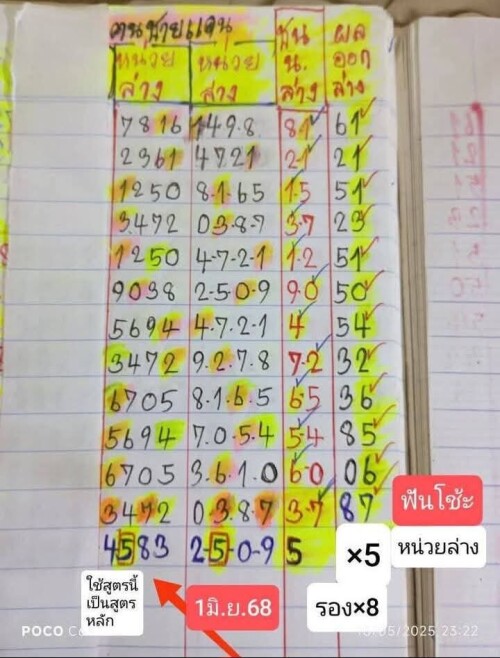 คนชายแดน
หน่วย ล่าง
หน่วย ล่าง
ชน น. ล่าง
ผล ออก ล่าง
7816 149.8 81 61
2361 4721 21 21
1250 8.1.65 1.5 51
3472 03.8.7 3.7 23
1250 4.7.2.1 1.2 51
9038 2.5.0.9 90 50
5694 4.7.2.1 4 54
3472 9.2.7.8 7.2 32
6705 8.1.6.5 6.5 36
5694 7.0.5.4 5.4 85
6705 3.6.1.0 6.0 06
3472 0.3.8.7 3.7 87
4583 2-5-0-9 5
ฟันโช๊ะ
×5 หน่วยล่าง
ใช้สูตรนี้
เป็นสูตร
หลัก
1มิ.ย.68
รอง×8
POCO
/05/2025 23:22